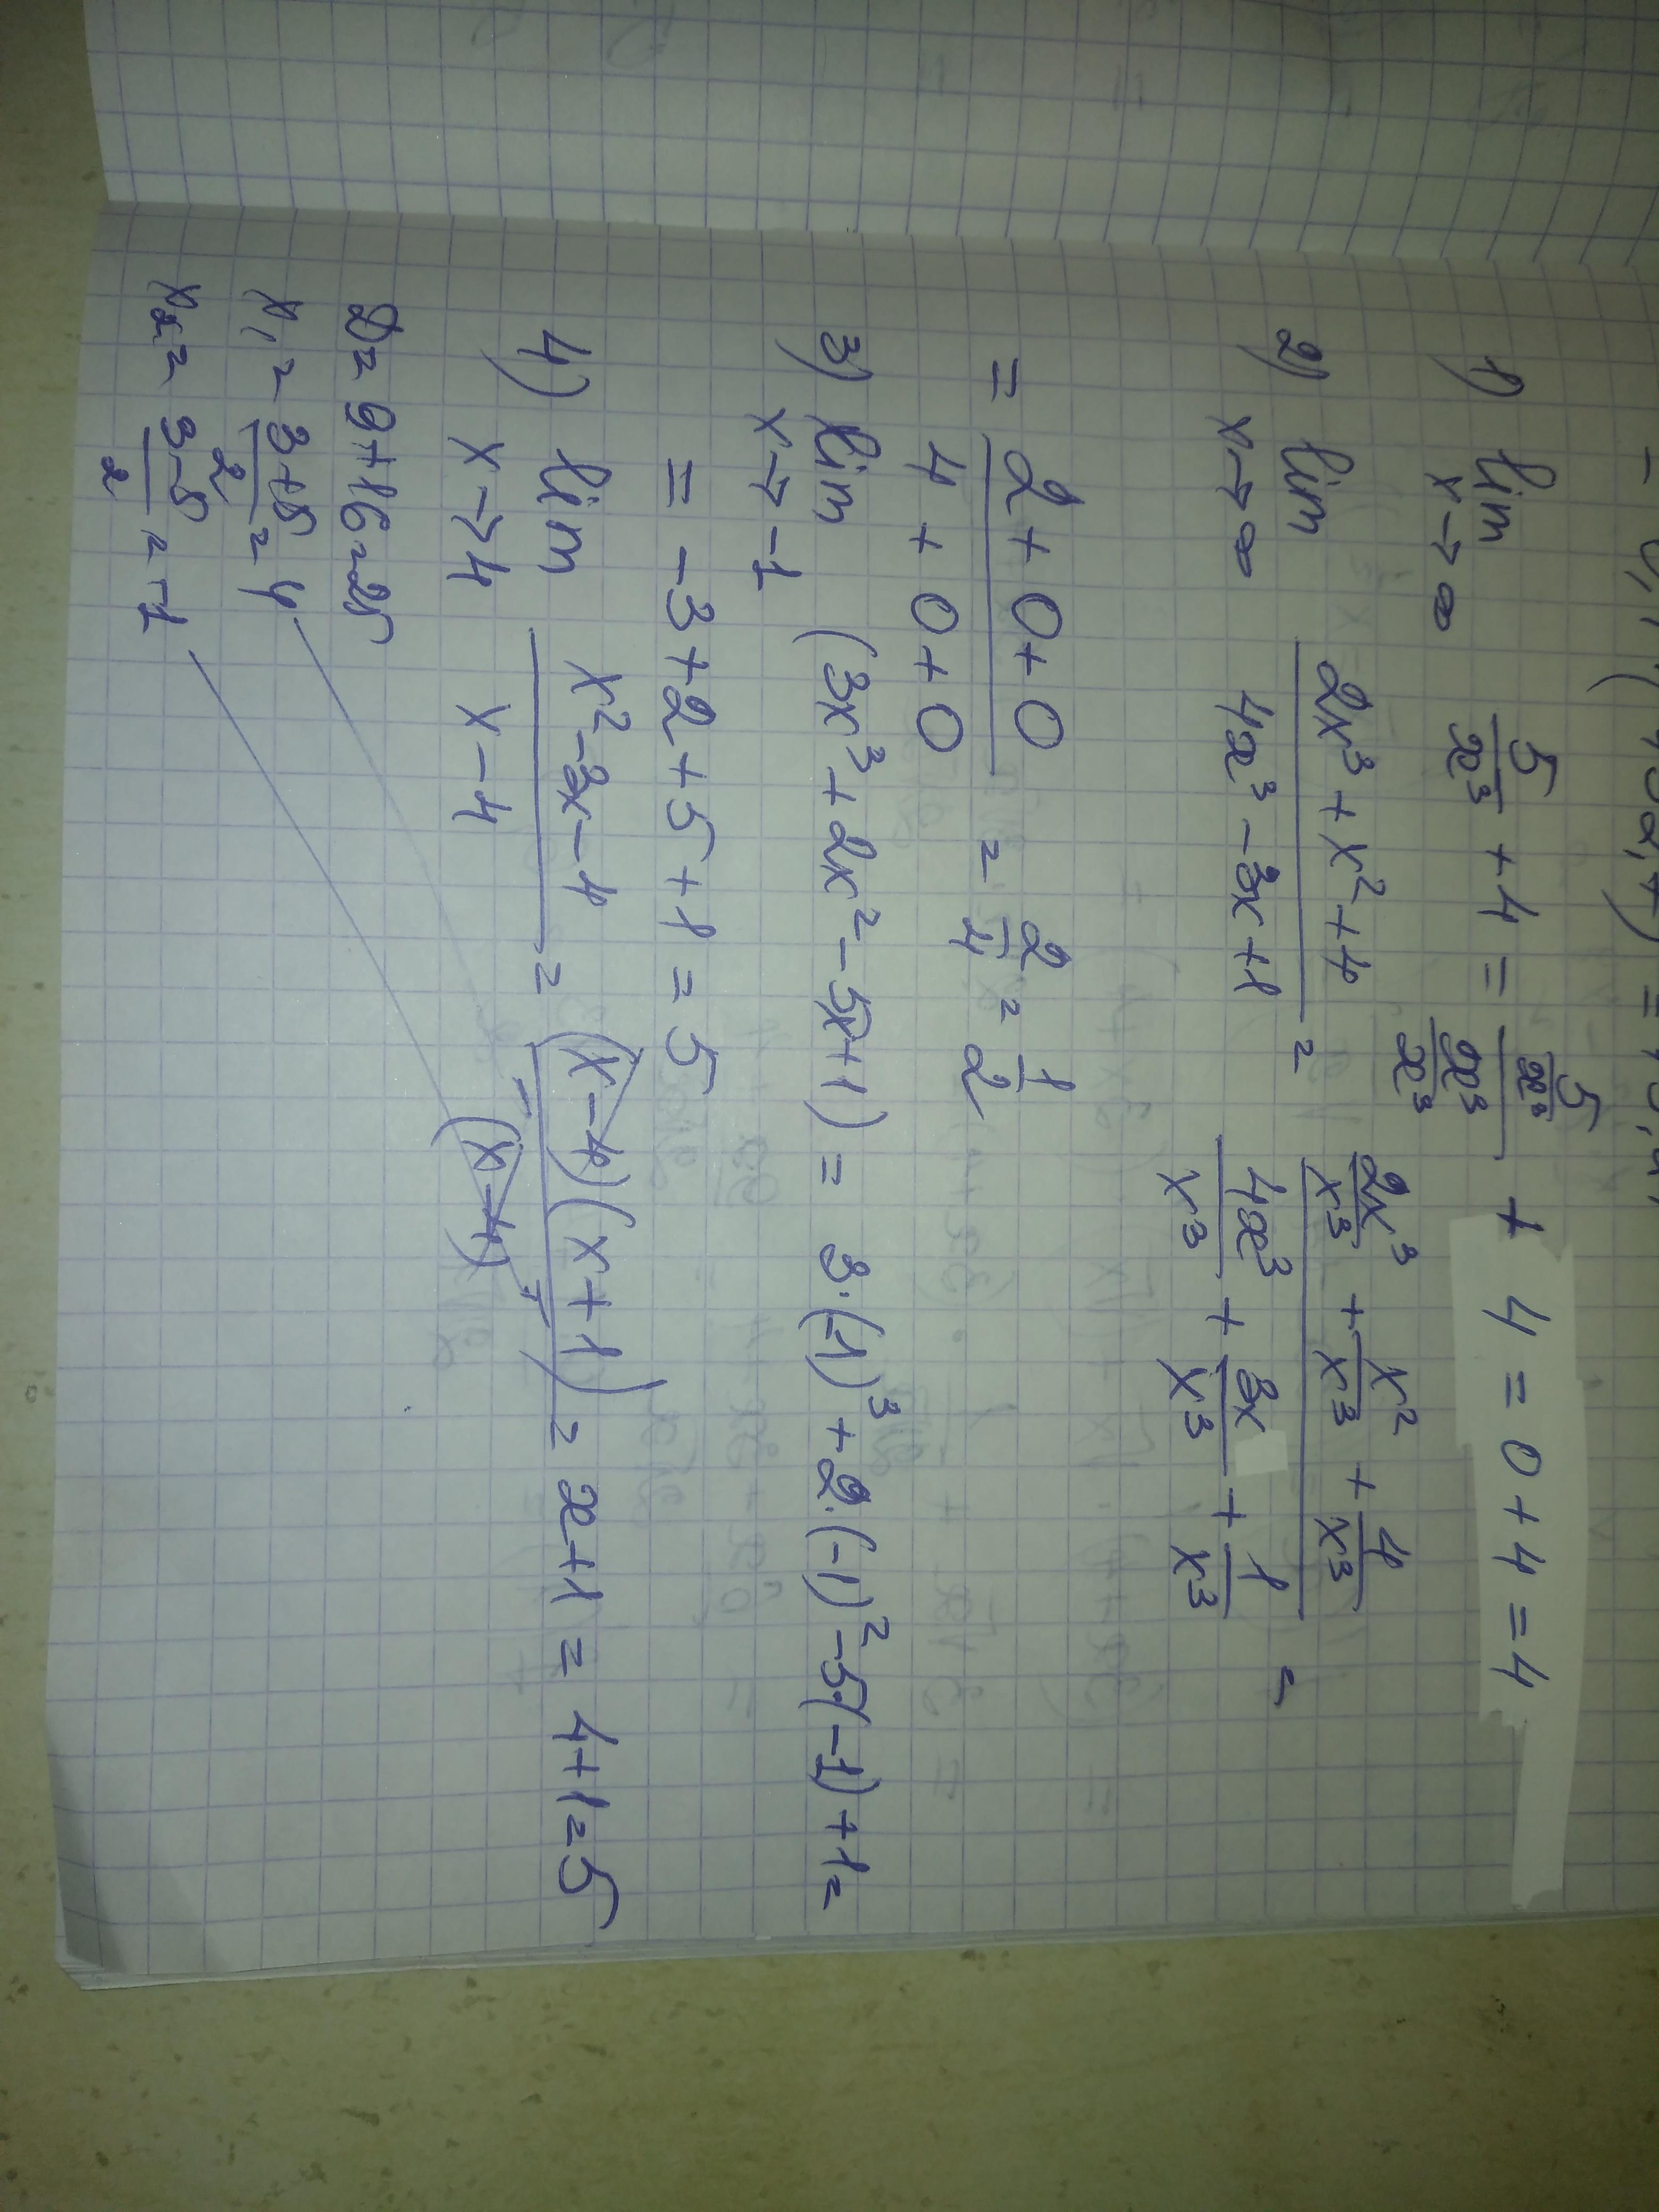 1) lim x→∞ 5/x³ + 4 = (5/x³)/(x³/x³) + 4 = 0 + 4 = 4
2) lim x→∞ (2x³ + x² + 4)/(4x³ - 3x + 1) = (2x³/x³ + x²/x³ + 4/x³)/(4x³/x³ + 3x/x³ + 1/x³) =
= (2 + 0 + 0)/(4 + 0 + 0) = 2/4 = 1/2
3) lim x→-1 (3x³ + 2x² - 5x + 1) = 3·(-1)³ + 2·(-1)² - 5·(-1) + 1 =
= -3 + 2 + 5 + 1 = 5
4) lim x→4 (x² - 3x - 4)/(x - 4) = (x - 4)(x + 1)/(x - 4) = x + 1 = 4 + 1 = 5
D = 9 + 16 = 25
x₁ = (3 + 5)/2 = 4
x₂ = (3 - 5)/2 = -1